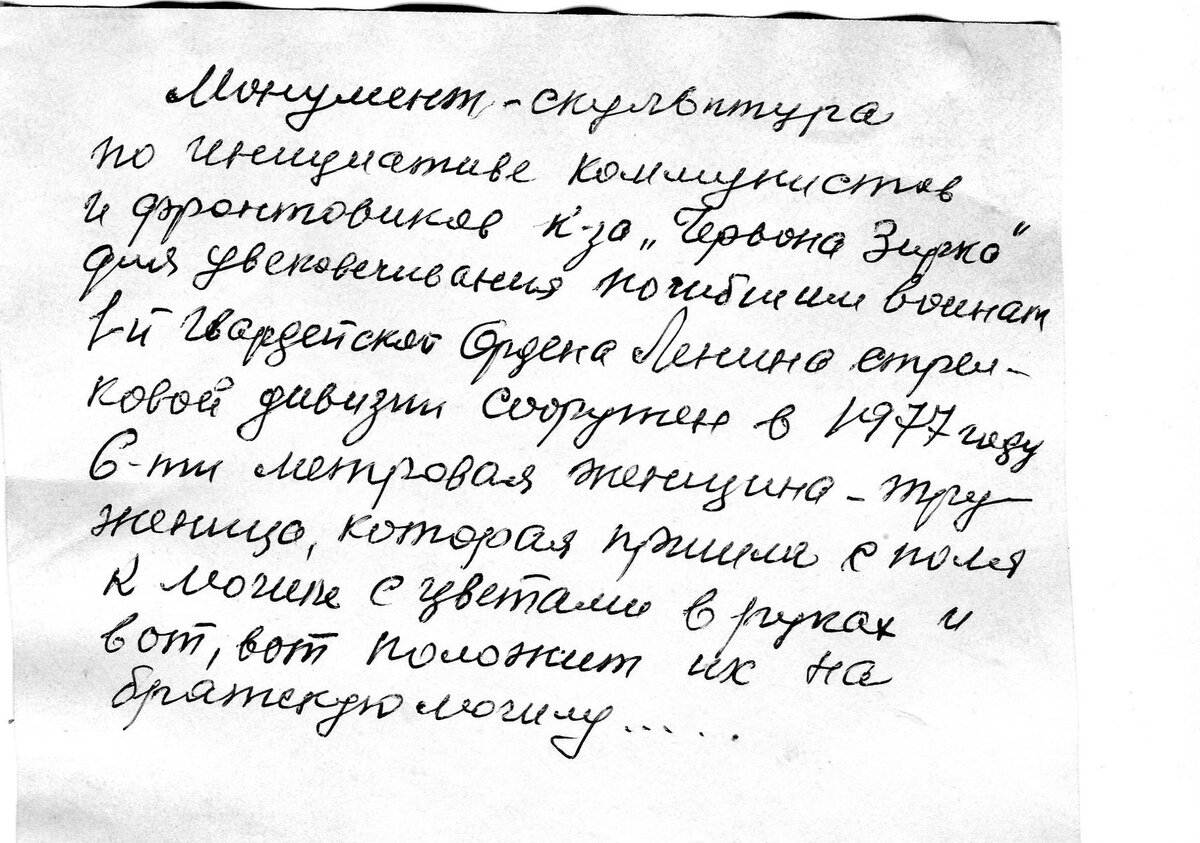 Монумент-скульптура
по инициативе коммунистов
и фронтовиков к-за „Червона Зирка"
для увековечивания погибшим воинам
1-й Гвардейской Ордена Ленина стрел-
ковой дивизии сооружен в 1977 году
6-ти метровая женщина-тру-
женица, которая пришла с поля
к могиле с цветами в руках и
вот, вот положит их на
братскую могилу.....